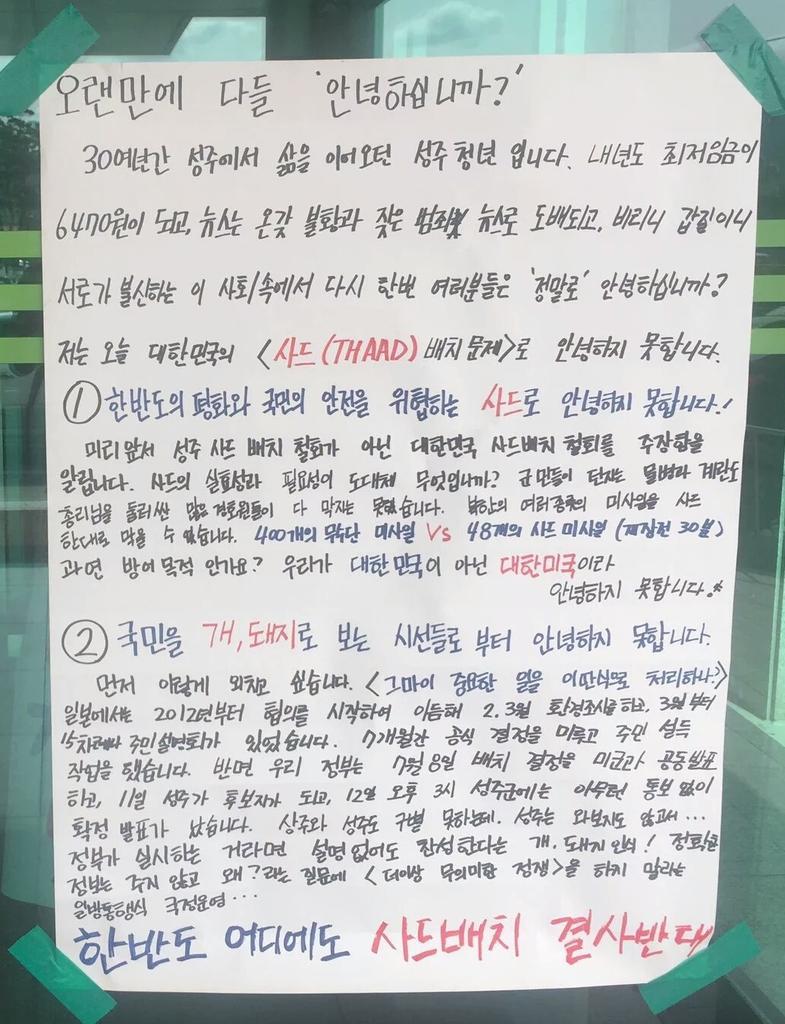 오랜만에 다들 '안녕하십니까?'
30여년간 성주에서 삶을 이어오던 성주 청년 입니다. 내년도 최저임금이
6470원이 되고, 뉴스는 온갖 불황과 잦은 범죄 뉴스로 도배되고, 비리니 갑질이니
서로가 불신하는 이 사회속에서 다시 한번 여러분들은 '정말로' 안녕하십니까?
저는 오늘 대한민국의 <사드(THAAD) 배치 문제>로 안녕하지 못합니다.
① 한반도의 평화와 국민의 안전을 위협하는 사드로 안녕하지 못합니다!
미리 앞서 성주 사드 배치 철회가 아닌 대한민국 사드배치 철회를 주장함을
알립니다. 사드의 실효성과 필요성이 도대체 무엇입니까? 군민들이 던지는 물병과 계란도
총리님을 둘러싼 많은 경호원들이 다 막지는 못했습니다. 북한의 여러종류의 미사일을 사드
한대로 막을 수 있습니다. 400개의 무수단 미사일 Vs 48개의 사드 미사일 (재장전 30분)
과연 방어 목적 인가요? 우리가 대한민국이 아닌 대한미국이라
안녕하지 못합니다.
② 국민을 개, 돼지로 보는 시선들로 부터 안녕하지 못합니다.
먼저 이렇게 외치고 싶습니다. <그마이 중요한 일을 이딴식으로 처리하나?>
일본에서는 2012년부터 협의를 시작하여 이듬해 2.3월 환경조사를 하고, 3월부터
15차례나 주민설명회가 있었습니다. 7개월간 공식 결정을 미루고 주민 설득
작업을 했습니다. 반면 우리 정부는 7월 8일 배치 결정을 미군과 공동발표
하고, 11일 성주가 후보지가 되고, 12일 오후 3시 성주군에는 아무런 통보 없이
확정 발표가 났습니다. 상주와 성주도 구별 못하는데. 성주는 와보지도 않고서...
정부가 실시하는 거라면 설명 없어도 찬성한다는 개. 돼지 인식! 정확한
정보는 주지 않고 왜? 라는 질문에 <더이상 무의미한 정쟁>을 하지 말라는
일방통행식 국정운영...
한반도 어디에도 사드배치 결사반대